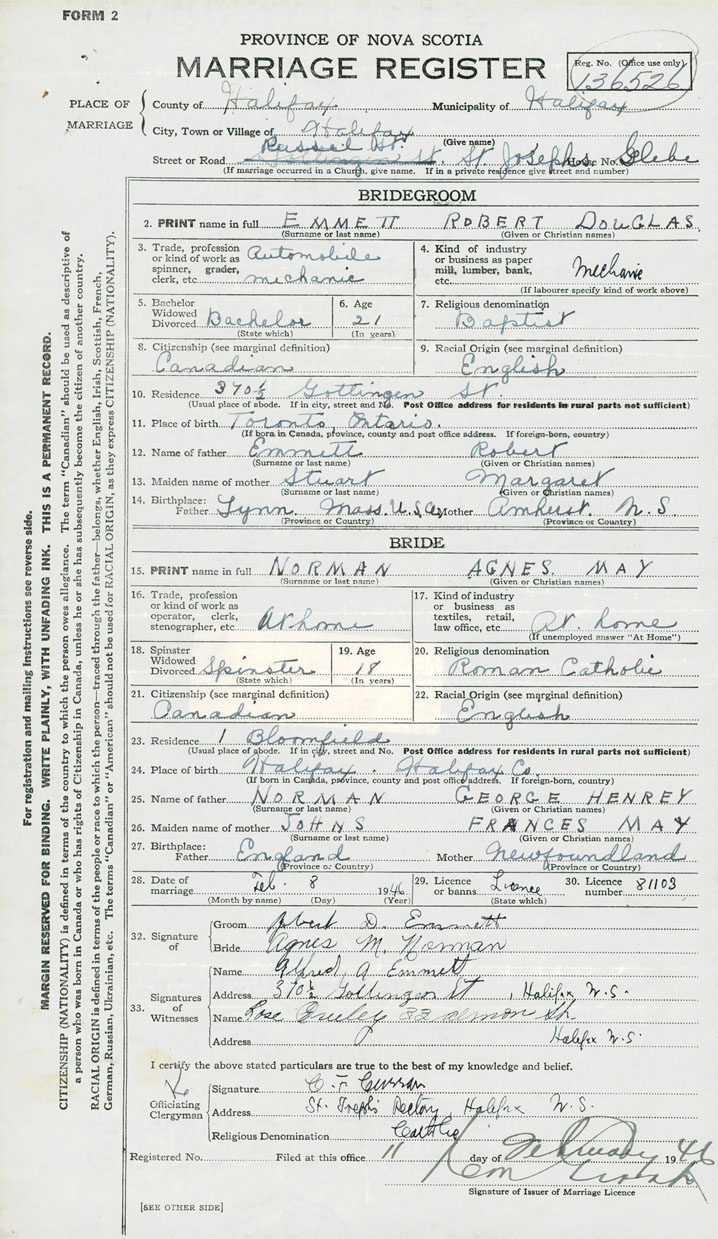 FORM 2
PROVINCE OF NOVA SCOTIA
MARRIAGE REGISTER
Reg. No. (Office use only)
136526
PLACE OF MARRIAGE
County of Halifax Municipality of Halifax
City, Town or Village of Halifax
(Give name)
Russell St.
Street or Road Gottingen St. St Josephs House No. Glebe
(If marriage occurred in a Church, give name. If in a private residence give street and number)
BRIDEGROOM
2. PRINT name in full EMMETT ROBERT DOUGLAS
(Surname or last name) (Given or Christian names)
3. Trade, profession or kind of work as spinner, grader, clerk, etc. Automobile mechanic
4. Kind of industry or business as paper mill, lumber, bank, etc. Mechanic
(If labourer specify kind of work above)
5. Bachelor Widowed Divorced Bachelor
(State which)
6. Age 21
(In years)
7. Religious denomination
Baptist
8. Citizenship (see marginal definition)
Canadian
9. Racial Origin (see marginal definition)
English
10. Residence 370½ Gottingen St.
(Usual place of abode. If in city, street and No. Post Office address for residents in rural parts not sufficient)
11. Place of birth Toronto, Ontario.
(If born in Canada, province, county and post office address. If foreign-born, country)
12. Name of father Emmett Robert
(Surname or last name) (Given or Christian names)
13. Maiden name of mother Stuart Margaret
(Surname or last name) (Given or Christian names)
14. Birthplace: Father Lynn Mass. U.S.A. Mother Amherst. N.S.
(Province or Country) (Province or Country)
BRIDE
15. PRINT name in full NORMAN AGNES MAY
(Surname or last name) (Given or Christian names)
16. Trade, profession or kind of work as operator, clerk, stenographer, etc. At home
17. Kind of industry or business as textiles, retail, law office, etc. At home
(If unemployed answer "At Home")
18. Spinster Widowed Divorced Spinster
(State which)
19. Age 18
(In years)
20. Religious denomination
Roman Catholic
21. Citizenship (see marginal definition)
Canadian
22. Racial Origin (see marginal definition)
English
23. Residence 1 Bloomfield
(Usual place of abode. If in city, street and No. Post Office address for residents in rural parts not sufficient)
24. Place of birth Halifax. Halifax Co.
(If born in Canada, province, county and post office address. If foreign-born, country)
25. Name of father NORMAN GEORGE HENREY
(Surname or last name) (Given or Christian names)
26. Maiden name of mother JOHNS FRANCES MAY
(Surname or last name) (Given or Christian names)
27. Birthplace: Father England Mother Newfoundland
(Province or Country) (Province or Country)
28. Date of marriage Feb. 8 1946
(Month by name) (Day) (Year)
29. Licence or banns Licence
(State which)
30. Licence number 81103
32. Signature of
Groom Robert D. Emmett
Bride Agnes M. Norman
33. Signatures of Witnesses
Name Alfred A Emmett
Address 370½ Gottingen St, Halifax N.S.
Name Rose 33 Almon St.
Address Halifax N.S.
I certify the above stated particulars are true to the best of my knowledge and belief.
Officiating Clergyman
Signature C. F. Curran
Address St. Josephs Rectory, Halifax N.S.
Religious Denomination Catholic
Registered No. Filed at this office 11 day of February 1946
Signature of Issuer of Marriage Licence
[SEE OTHER SIDE]
For registration and mailing instructions see reverse side.
MARGIN RESERVED FOR BINDING. WRITE PLAINLY, WITH UNFADING INK. THIS IS A PERMANENT RECORD.
CITIZENSHIP (NATIONALITY) is defined in terms of the country to which the person owes allegiance. The term "Canadian" should be used as descriptive of
a person who was born in Canada or who has rights of Citizenship in Canada, unless he or she has subsequently become the citizen of another country.
RACIAL ORIGIN is defined in terms of the people or race to which the person—traced through the father—belongs, whether English, Irish, Scottish, French,
German, Russian, Ukrainian, etc. The terms "Canadian" or "American" should not be used for RACIAL ORIGIN, as they express CITIZENSHIP (NATIONALITY).